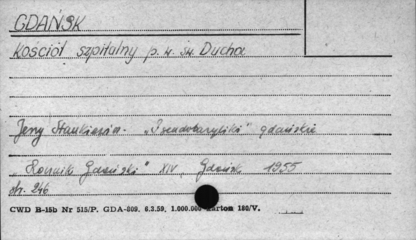 GDAŃSK
Kościół szpitalny p. w. św. Ducha
Jerzy Stankiewicz. „Pseudobazyliki" gdańskie
„Rocznik Gdański" XIV, Gdańsk 1955
str. 246
CWD B-15b Nr 515/P. GDA-809. 6.3.59. 1.000.000 karton 180/V.